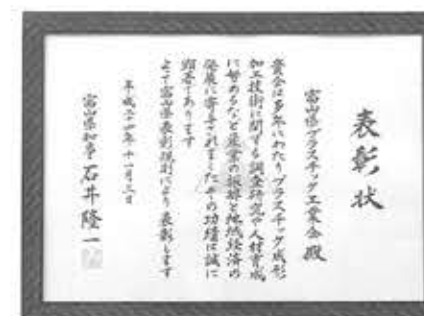 表彰状
富山県プラスチック工業会殿
貴会は多年にわたりプラスチック成形
加工技術に関する調査研究や人材育成
に努めるなど産業の振興と地域経済の
発展に寄与されましたその功績は誠に
顕著であります
よって富山県表彰規則により表彰します
平成二十四年十一月三日
富山県知事 石井隆一